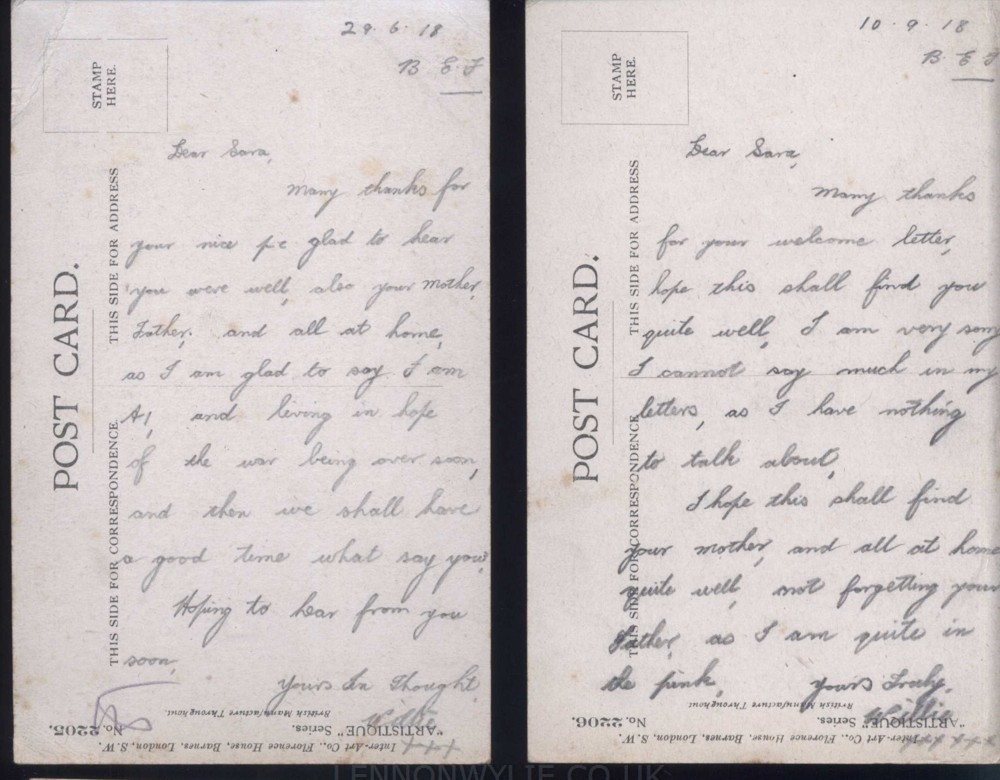 29.6.18
B E F
STAMP
HERE.
Dear Sara,
Many thanks for
your nice p.c glad to hear
you were well, also your Mother,
Father. and all at home,
as I am glad to say I am
A1, and living in hope
of the war being over soon,
and then we shall have
a good time what say you?
Hoping to hear from you
soon,
Yours In Thought
Willie
+++
POST CARD.
THIS SIDE FOR CORRESPONDENCE
THIS SIDE FOR ADDRESS
Inter-Art Co., Florence House, Barnes, London, S.W.
"ARTISTIQUE" Series.
No. 2205.
British Manufacture Throughout
10.9.18
B.E F
STAMP
HERE.
Dear Sara,
Many thanks
for your welcome letter,
hope this shall find you
quite well, I am very sorry
I cannot say much in my
letters, as I have nothing
to talk about,
I hope this shall find
your mother, and all at home
quite well, not forgetting your
Father, as I am quite in
the pink, Yours Truly,
Willie
POST CARD.
THIS SIDE FOR CORRESPONDENCE
THIS SIDE FOR ADDRESS
Inter-Art Co., Florence House, Barnes, London, S.W.
"ARTISTIQUE" Series.
No. 2206.
British Manufacture Throughout
LENNONWYLIE.CO.UK